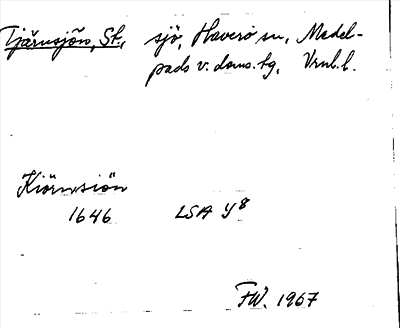 Tjärnsjön, St., sjö, Haverö sn, Medel-
pads v. doms. tg, Vrnl. l.
Kiörnsiön
1646 LSA Y8
FW. 1967